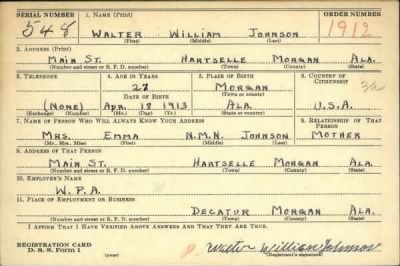 SERIAL NUMBER 1. NAME (Print) ORDER NUMBER
548 WALTER WILLIAM JOHNSON 1912
(First) (Middle) (Last)
2. ADDRESS (Print)
MAIN ST. HARTSELLE MORGAN ALA.
(Number and street or R. F. D. number) (Town) (County) (State)
3. TELEPHONE 4. AGE IN YEARS 5. PLACE OF BIRTH 6. COUNTRY OF CITIZENSHIP
27 MORGAN
DATE OF BIRTH (Town or county)
(NONE) APR. 18 1913 ALA. U.S.A.
(Exchange) (Number) (Mo.) (Day) (Yr.) (State or country)
7. NAME OF PERSON WHO WILL ALWAYS KNOW YOUR ADDRESS 8. RELATIONSHIP OF THAT PERSON
MRS. EMMA N.M.N. JOHNSON MOTHER
(Mr., Mrs., Miss) (First) (Middle) (Last)
9. ADDRESS OF THAT PERSON
MAIN ST. HARTSELLE MORGAN ALA.
(Number and street or R. F. D. number) (Town) (County) (State)
10. EMPLOYER'S NAME
W. P. A.
11. PLACE OF EMPLOYMENT OR BUSINESS
DECATUR MORGAN ALA.
(Number and street or R. F. D. number) (Town) (County) (State)
I AFFIRM THAT I HAVE VERIFIED ABOVE ANSWERS AND THAT THEY ARE TRUE.
REGISTRATION CARD
D. S. S. Form 1 Walter William Johnson
(Registrant's signature)